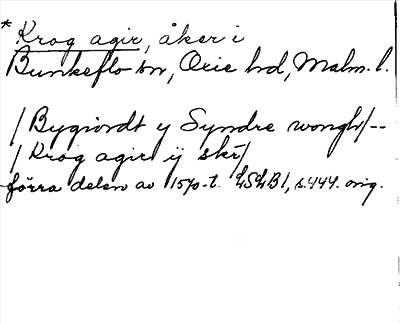 * Krog agir, åker i
Bunkeflo sn, Oxie hd, Malm. l.
/ Bygiordt y Syndre wongh/--
/ Krog agir ÿ skr/
förra delen av 1570-t. LSLB1, s.444. orig.